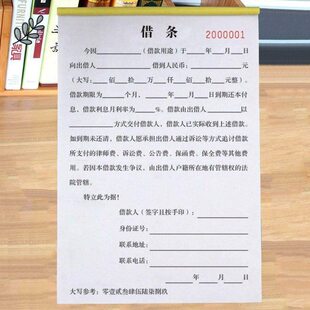 借条 2000001
今因________(借款用途)于____年____月____日
向出借人________借到人民币:________元
(大写:____佰____拾____万____仟____佰____拾____元整)。
借款期限为____个月, ____年____月____日到期还本付
息,借款利息月利率为____%。借款由出借人________以
________方式交付借款人,借款人已实际收到上述借款。
如到期未还清,借款人愿承担出借人通过诉讼等方式追讨借款
所支付的律师费、诉讼费、公告费、保函费、保全费等其他费
用。若因本借款发生争议,由出借人户籍所在地有管辖权的法
院管辖。
特立此为据!
借款人(签字且按手印):________
身份证号:________
联系地址:________
联系电话:________
____年____月____日
大写参考:零壹贰叁肆伍陆柒捌玖